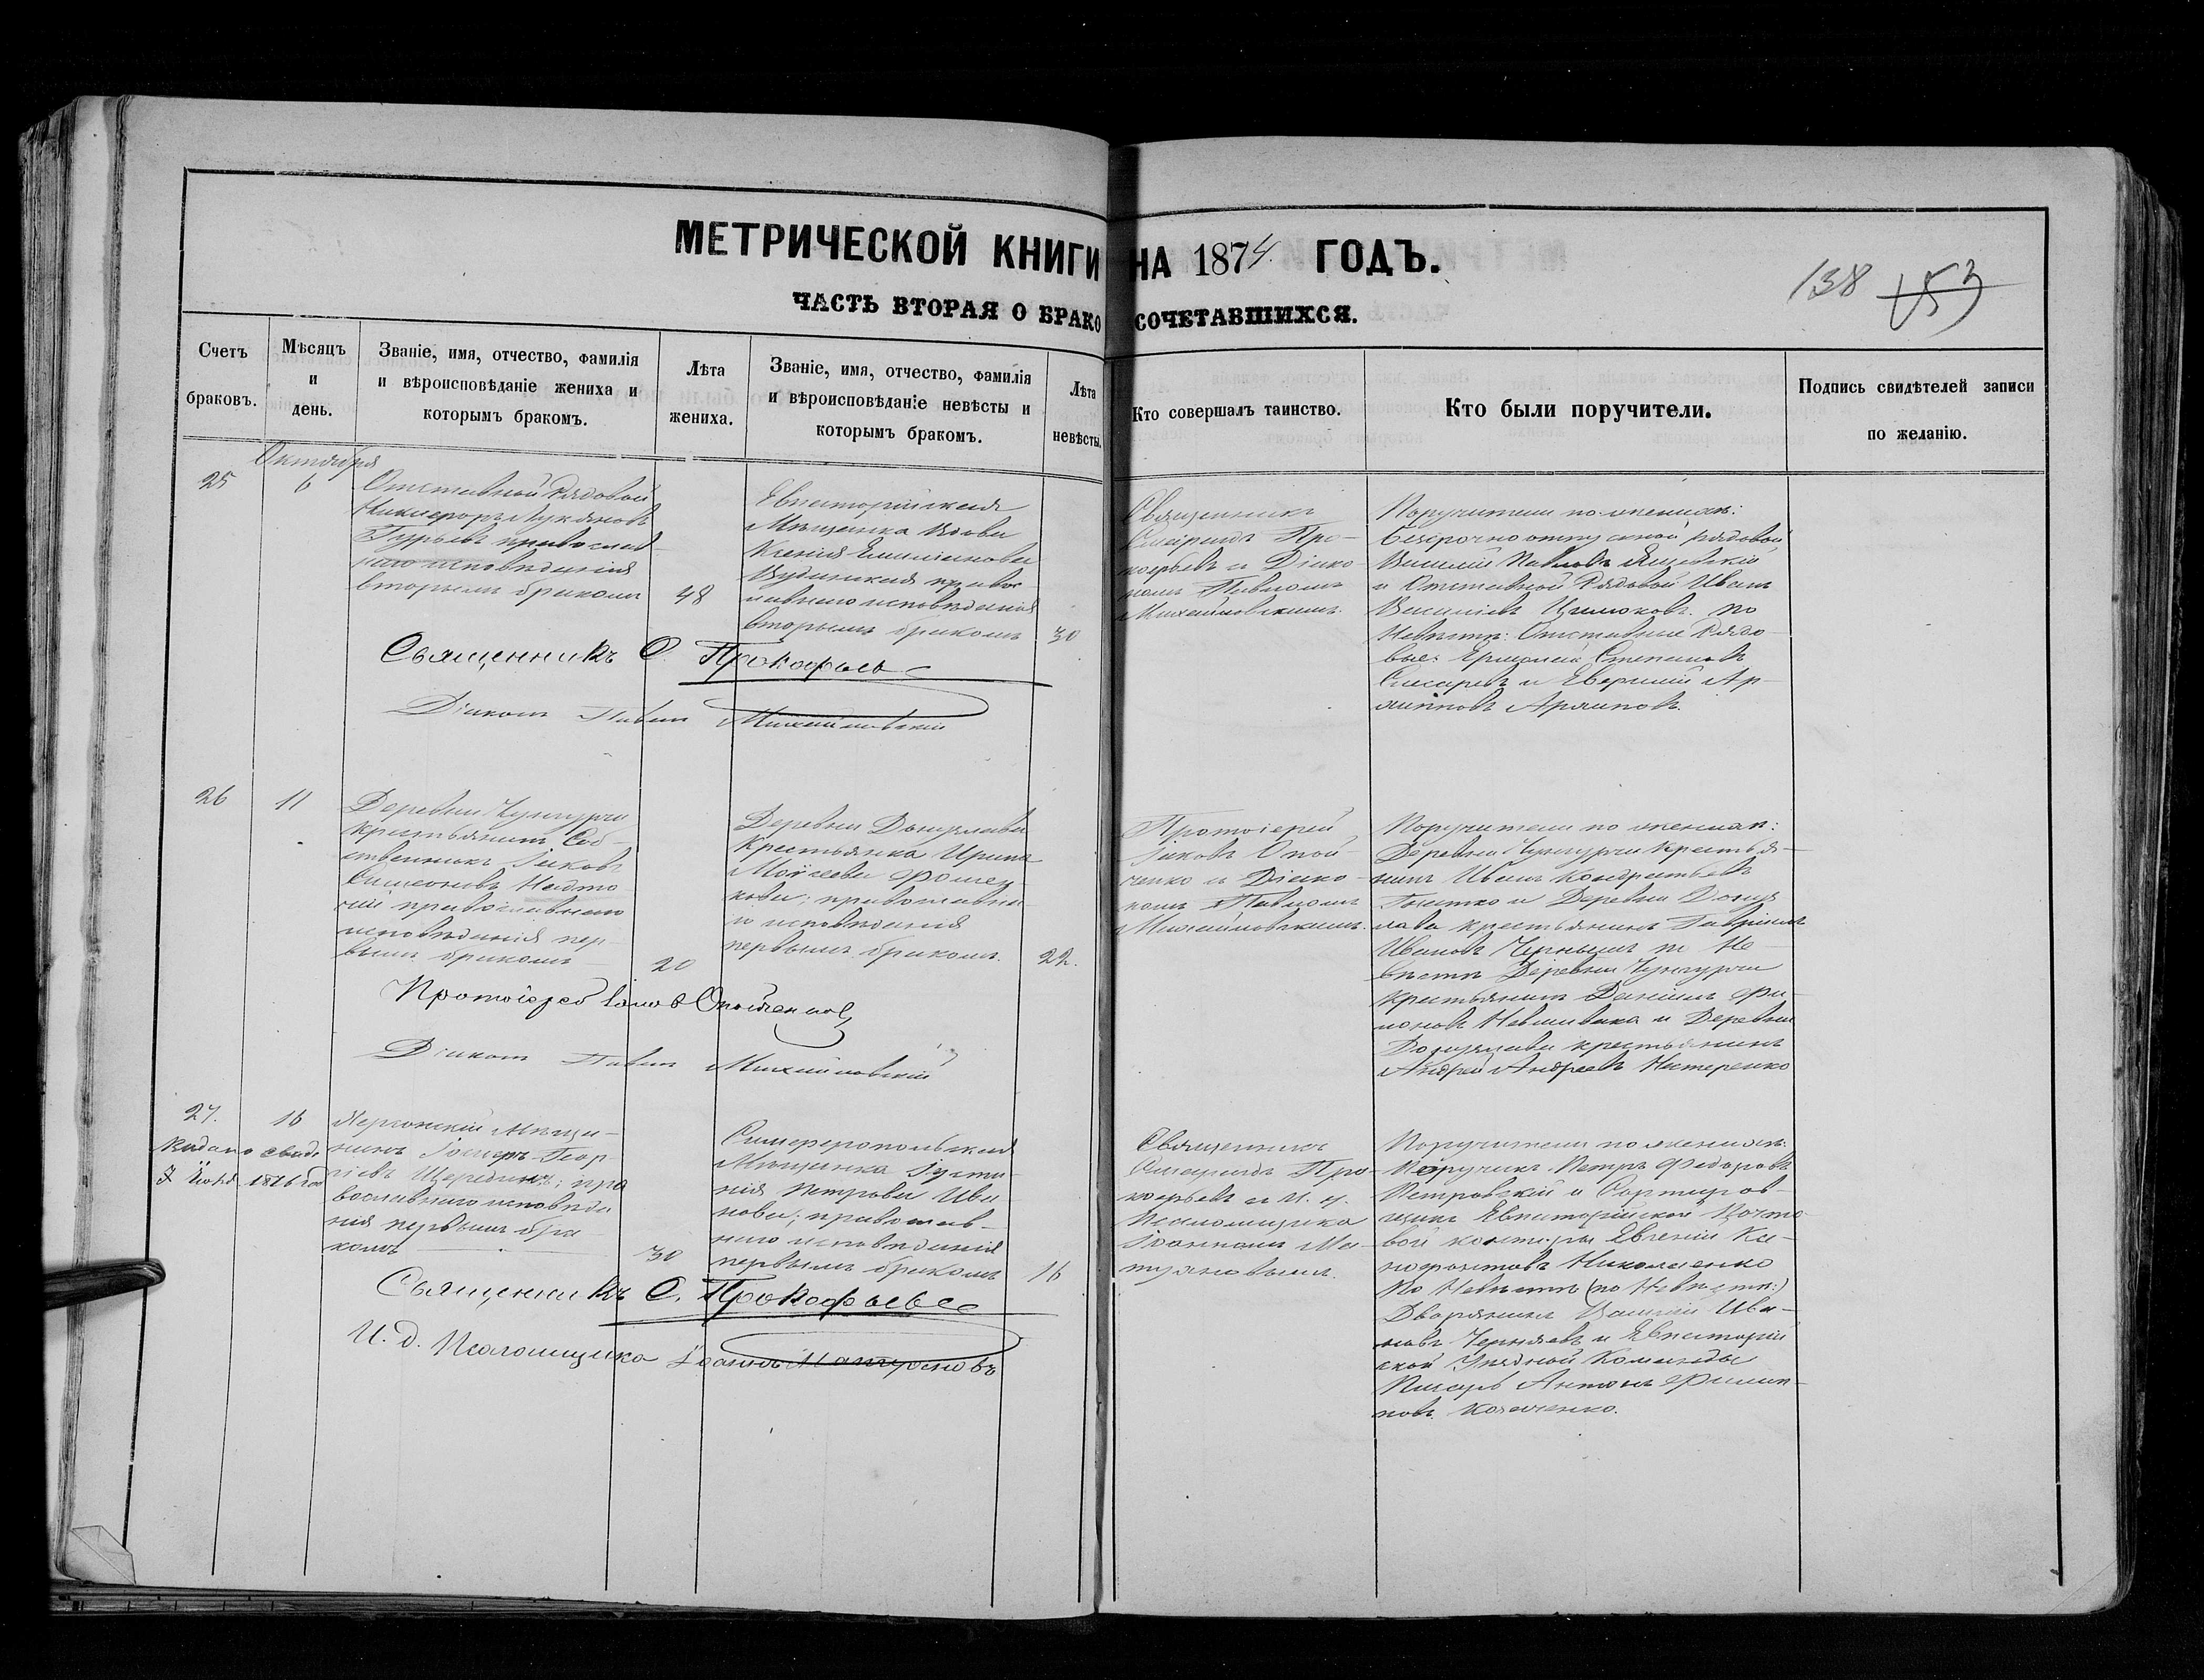 МЕТРИЧЕСКОЙ КНИГИ НА 1874 ГОДЪ.
138 153
ЧАСТЬ ВТОРАЯ О БРАКОСОЧЕТАВШИХСЯ.
Счетъ браковъ.
Мѣсяцъ и день.
Званіе, имя, отчество, фамилія
и вѣроисповѣданіе жениха и
которымъ бракомъ.
Лѣта жениха.
Званіе, имя, отчество, фамилія
и вѣроисповѣданіе невѣсты и
которымъ бракомъ.
Лѣта невѣсты.
Кто совершалъ таинство.
Кто были поручители.
Подпись свидѣтелей записи
по желанію.
Октября
25
6
Отставной Рядовой
Никифоръ Лукяновъ
Гурьевъ православ-
наго исповѣданія
вторымъ бракомъ
48
Евпаторійская
Мѣщанка Вдова
Ксенія Емиліанова
православнаго исповѣданія
вторымъ бракомъ
30
Священникъ
Спиридонъ Про-
кофьевъ и Діако-
номъ Павломъ
Михайловскимъ.
Поручители по женихѣ:
Безсрочноотпускной рядовой
Василій Павловъ
и Отставной Рядовой Иванъ
Василіевъ по
Невѣстѣ: Отставные Рядо-
вые: Ермолай Степановъ
Слесаревъ и
Священникъ С. Прокофьевъ
Діаконъ Павелъ Михайловскій
26
11
Деревни
крестьянинъ Соб-
ственникъ Іаковъ
Симеоновъ
православнаго
исповѣданія пер-
вымъ бракомъ
20
Деревни Донузлава
Крестьянка Ирина
Моисеева
православна-
го исповѣданія
первымъ бракомъ.
22.
Протоіерей
Іаковъ Опой-
ченко и Діако-
номъ Павломъ
Михайловскимъ.
Поручители по женихѣ:
Деревни крестья-
нинъ Иванъ Кондратьевъ
и Деревни Донуз
лава крестьянинъ Гавріилъ
Ивановъ Не-
вѣстѣ Деревни
крестьянинъ Даніилъ
и Деревни
Донузлава крестьянинъ
Андрей Андреевъ Нестеренко
Протоіерей Іаковъ Опойченко
Діаконъ Павелъ Михайловскій
27.
16
Выдано свид.
Іюня 1876 год
Мѣща-
нинъ Іосифъ Геор-
гіевъ пра
вославнаго исповѣда
нія первымъ бра
комъ
30
Симферопольская
Мѣщанка Іусти-
нія Петрова Ива
нова; православ-
наго исповѣданія
первымъ бракомъ
16
Священникъ
Спиридонъ Про-
кофьевъ и И. д.
Псаломщика
Іоанномъ Ма-
Поручители по женихѣ:
Поручикъ Петръ Федоровъ
Петровскій и Сортиров-
щикъ Евпаторійской Почто
вой конторы Евгеній Ка-
Николаенко
По Невѣстѣ (по Невѣстѣ:)
Дворянинъ Василій Ива-
новъ Черняевъ и Евпаторій
ской Уѣздной Команды
Писарь Антонъ Филип-
повъ
Священникъ С. Прокофьевъ
И. д. Псаломщика Іоаннъ